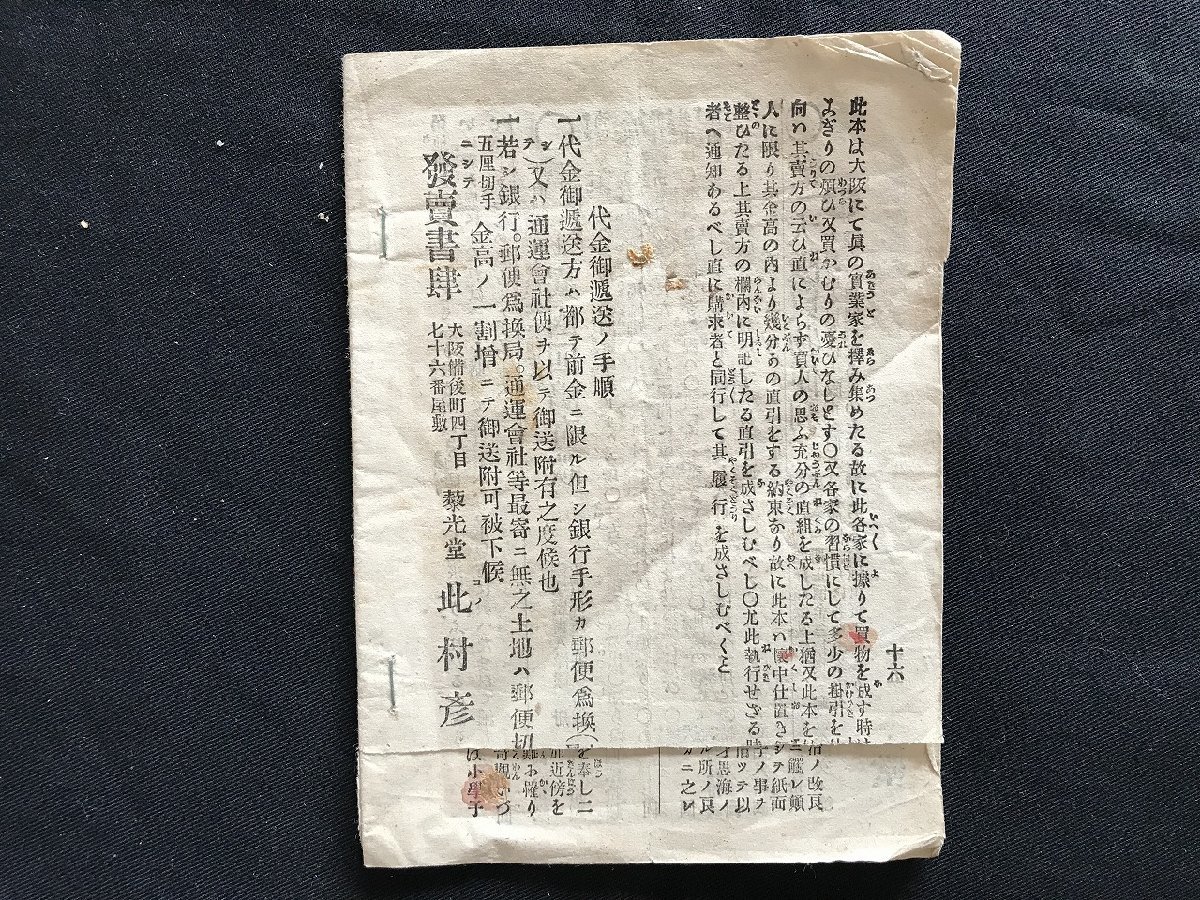 十六
此本は大阪にて眞の實業家を擇み集めたる故に此各家に據りて買物を成す時は
まぎりの煩ひ及買かむりの憂ひなしとす〇又各家の習慣にして多少の掛引を
向ハ其賣方の云ひ直によらず買人の思ふ充分の直組を成したる上猶又此本を
人に限り其金高の内より幾分うの直引をする約束なり故に此本ハ懷中仕置き
整ひたる上其賣方の欄内に明記したる直引を成さしむべし〇尤此執行せざる時
者へ通知あるべし直に購求者と同行して其履行を成さしむべくと
代金御遞送ノ手順
一代金御遞送方ハ都テ前金ニ限ル但シ銀行手形カ郵便爲換(
テ)又ハ通運會社便ヲ以テ御送附有之度候也
一若シ銀行。郵便爲換局。通運會社等最寄ニ無之土地ハ郵便切
五厘切手ニシテ金高ノ一割增ニテ御送附可被下候
發賣書肆
大阪備後町四丁目
七十六番屋敷
藜光堂
此村彥
ノ改良
レ顛
シテ紙面
ノ事テ
ッテ以
海ノ
ル所ノ良
ニ之レ
を奉し二
近傍を
り
づ
は小學子